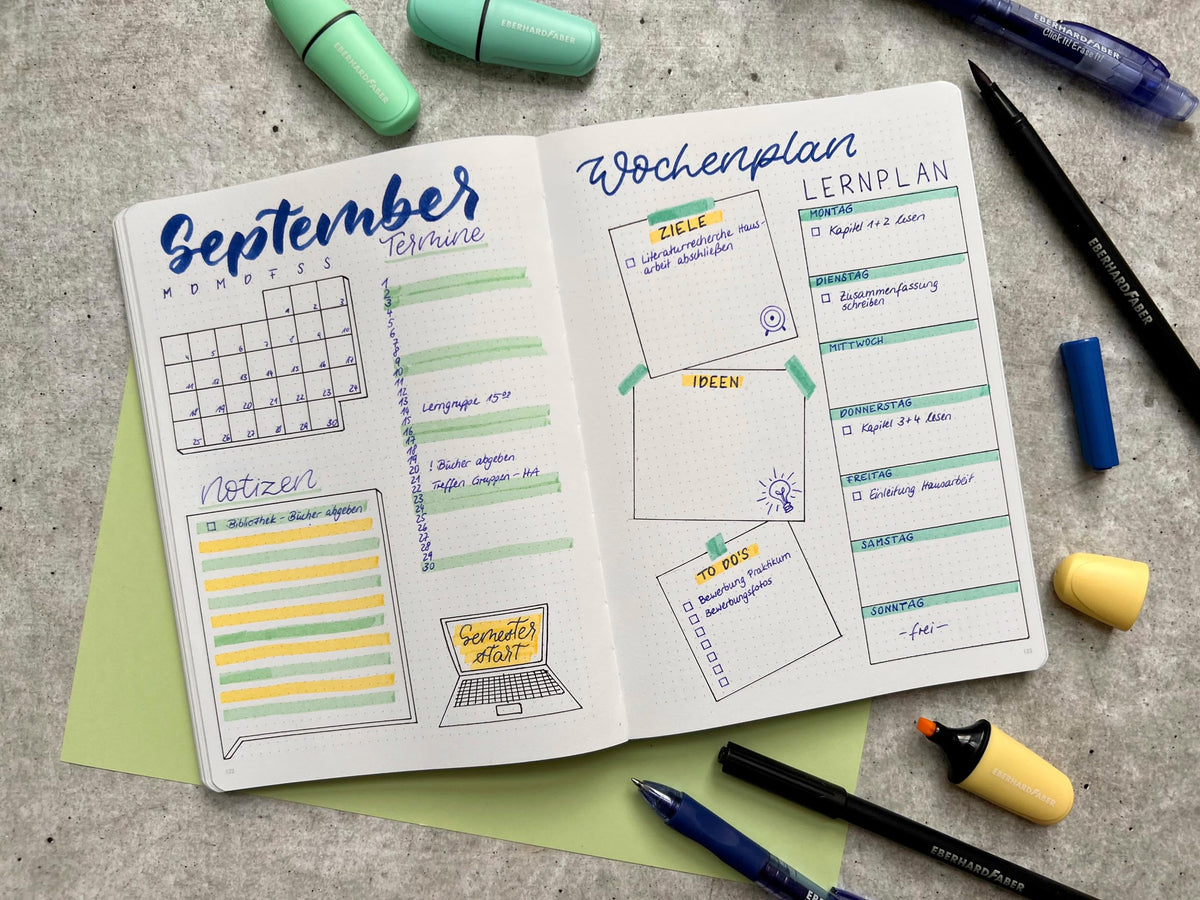 September
M D M D F S S
1 2 3
4 5 6 7 8 9 10
11 12 13 14 15 16 17
18 19 20 21 22 23 24
25 26 27 28 29 30
Termine
1
2
3
4
5
6
7
8
9
10
11
12
13
14 Lerngruppe 15⁰⁰
15
16
17
18
19
20 ! Bücher abgeben
21
22 Treffen Gruppen-HA
23
24
25
26
27
28
29
30
Notizen
Bibliothek - Bücher abgeben
Semester
start
122
Wochenplan
ZIELE
Literaturrecherche Haus-
arbeit abschließen
IDEEN
TO DO'S
Bewerbung Praktikum
Bewerbungsfotos
LERNPLAN
MONTAG
Kapitel 1+2 lesen
DIENSTAG
Zusammenfassung
schreiben
MITTWOCH
DONNERSTAG
Kapitel 3+4 lesen
FREITAG
Einleitung Hausarbeit
SAMSTAG
SONNTAG
-frei-
123
EBERHARDFABER
EBERHARDFABER
EBERHARDFABER
Click it! Erase it!
EBERHARDFABER
EBERHARDFABER
EBERHARDFABER